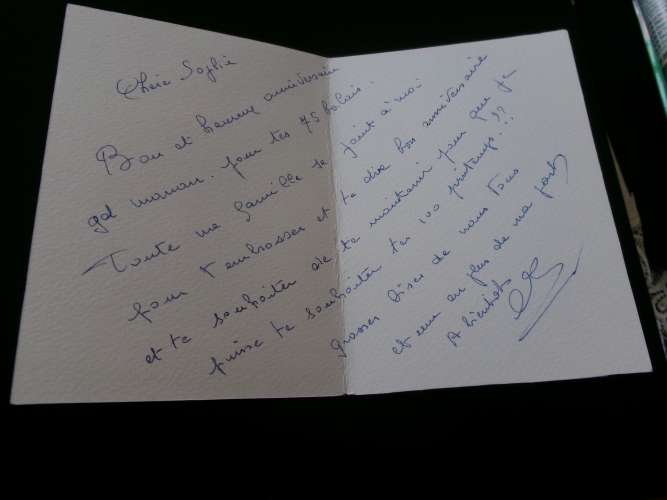 Chère Sophie
Bon et heureux anniversaire
gd maman. pour tes 75 balais.
Toute ma famille se joint à moi
pour t'embrasser et te dire bon anniversaire
et te souhaiter de te maintenir pour que je
puisse te souhaiter tes 100 printemps. !!
grosses bises de nous tous
et une en plus de ma part
A bientôt